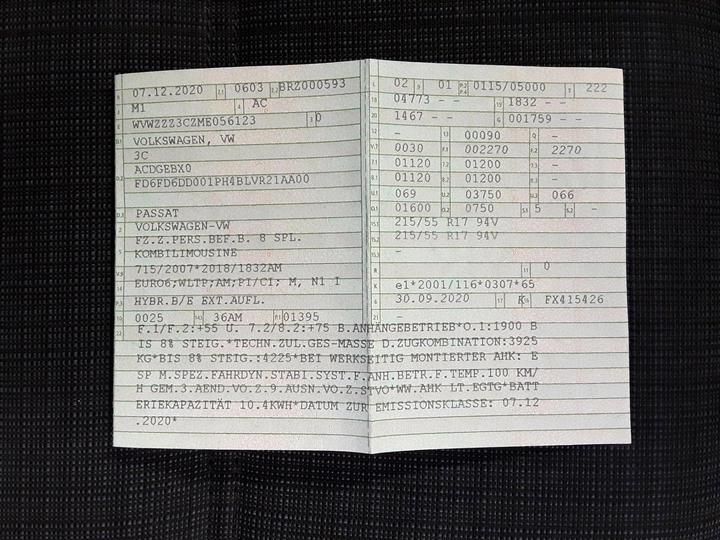 B 07.12.2020 2.1 0603 2.2 BRZ000593
J M1 4 AC
E WVWZZZ3CZME056123 3 0
D.1 VOLKSWAGEN, VW
3C
D.2 ACDGEBX0
FD6FD6DD001PH4BLVR21AA00
D.3 PASSAT
2 VOLKSWAGEN-VW
5 FZ.Z.PERS.BEF.B. 8 SPL.
KOMBILIMOUSINE
V.9 715/2007*2018/1832AM
14 EURO6;WLTP;AM;PI/CI; M, N1 I
P.3 HYBR.B/E EXT.AUFL.
10 0025 14.1 36AM P.1 01395
L 02 9 01 P.2 P.4 0115/05000 T 222
18 04773 - - 19 1832 - -
20 1467 - - G 001759 - -
12 - 13 00090 Q -
V.7 0030 F.1 002270 F.2 2270
7.1 01120 7.2 01200 7.3 -
8.1 01120 8.2 01200 8.3 -
U.1 069 U.2 03750 U.3 066
O.1 01600 O.2 0750 S.1 5 S.2 -
15.1 215/55 R17 94V
15.2 215/55 R17 94V
15.3 -
R 11 0
K e1*2001/116*0307*65
6 30.09.2020 17 K 16 FX415426
21 -
22 F.1/F.2:+55 U. 7.2/8.2:+75 B.ANHÄNGEBETRIEB*O.1:1900 B
IS 8% STEIG.*TECHN.ZUL.GES-MASSE D.ZUGKOMBINATION:3925
KG*BIS 8% STEIG.:4225*BEI WERKSEITIG MONTIERTER AHK: E
SP M.SPEZ.FAHRDYN.STABI.SYST.F.ANH.BETR.F.TEMP.100 KM/
H GEM.3.AEND.VO.Z.9.AUSN.VO.Z.STVO*WW.AHK LT.EGTG*BATT
ERIEKAPAZITÄT 10.4KWH*DATUM ZUR EMISSIONSKLASSE: 07.12
.2020*